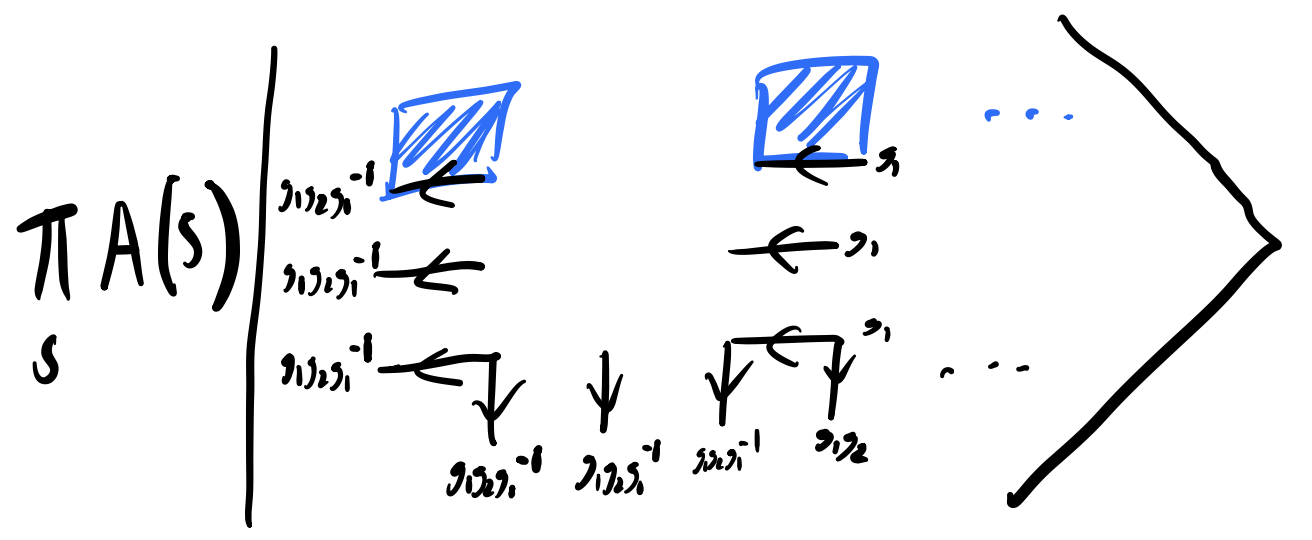 g₁g₂g₁⁻¹ g₁ ...
π A(s) g₁g₂g₁⁻¹ g₁
s g₁g₂g₁⁻¹ g₁ ...
g₁g₂g₁⁻¹ g₁g₂g₁⁻¹ g₁g₂g₁⁻¹ g₁g₂